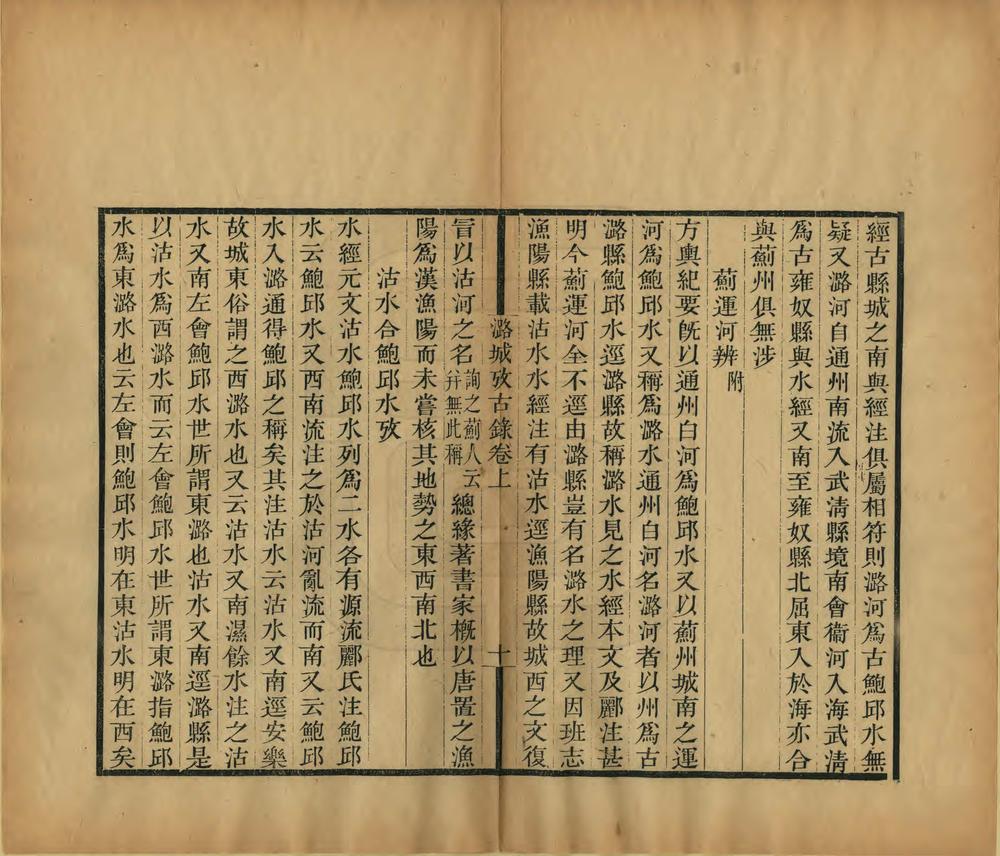 經古縣城之南與經注俱屬相符則潞河爲古鮑邱水無
疑又潞河自通州南流入武清縣境南會衞河入海武清
爲古雍奴縣與水經又南至雍奴縣北屈東入於海亦合
與薊州俱無涉
薊運河辨附
方輿紀要旣以通州白河爲鮑邱水又以薊州城南之運
河爲鮑邱水又稱爲潞水通州白河名潞河者以州爲古
潞縣鮑邱水逕潞縣故稱潞水見之水經本文及酈注甚
明今薊運河全不逕由潞縣豈有名潞水之理又因班志
漁陽縣載沽水水經注有沽水逕漁陽縣故城西之文復
潞城攷古錄卷上
十
冒以沽河之名詢之薊人云幷無此稱總緣著書家槪以唐置之漁
陽爲漢漁陽而未嘗核其地勢之東西南北也
沽水合鮑邱水攷
水經元文沽水鮑邱水列爲二水各有源流酈氏注鮑邱
水云鮑邱水又西南流注之於沽河亂流而南又云鮑邱
水入潞通得鮑邱之稱矣其注沽水云沽水又南逕安樂
故城東俗謂之西潞水也又云沽水又南濕餘水注之沽
水又南左會鮑邱水世所謂東潞也沽水又南逕潞縣是
以沽水爲西潞水而云左會鮑邱水世所謂東潞指鮑邱
水爲東潞水也云左會則鮑邱水明在東沽水明在西矣